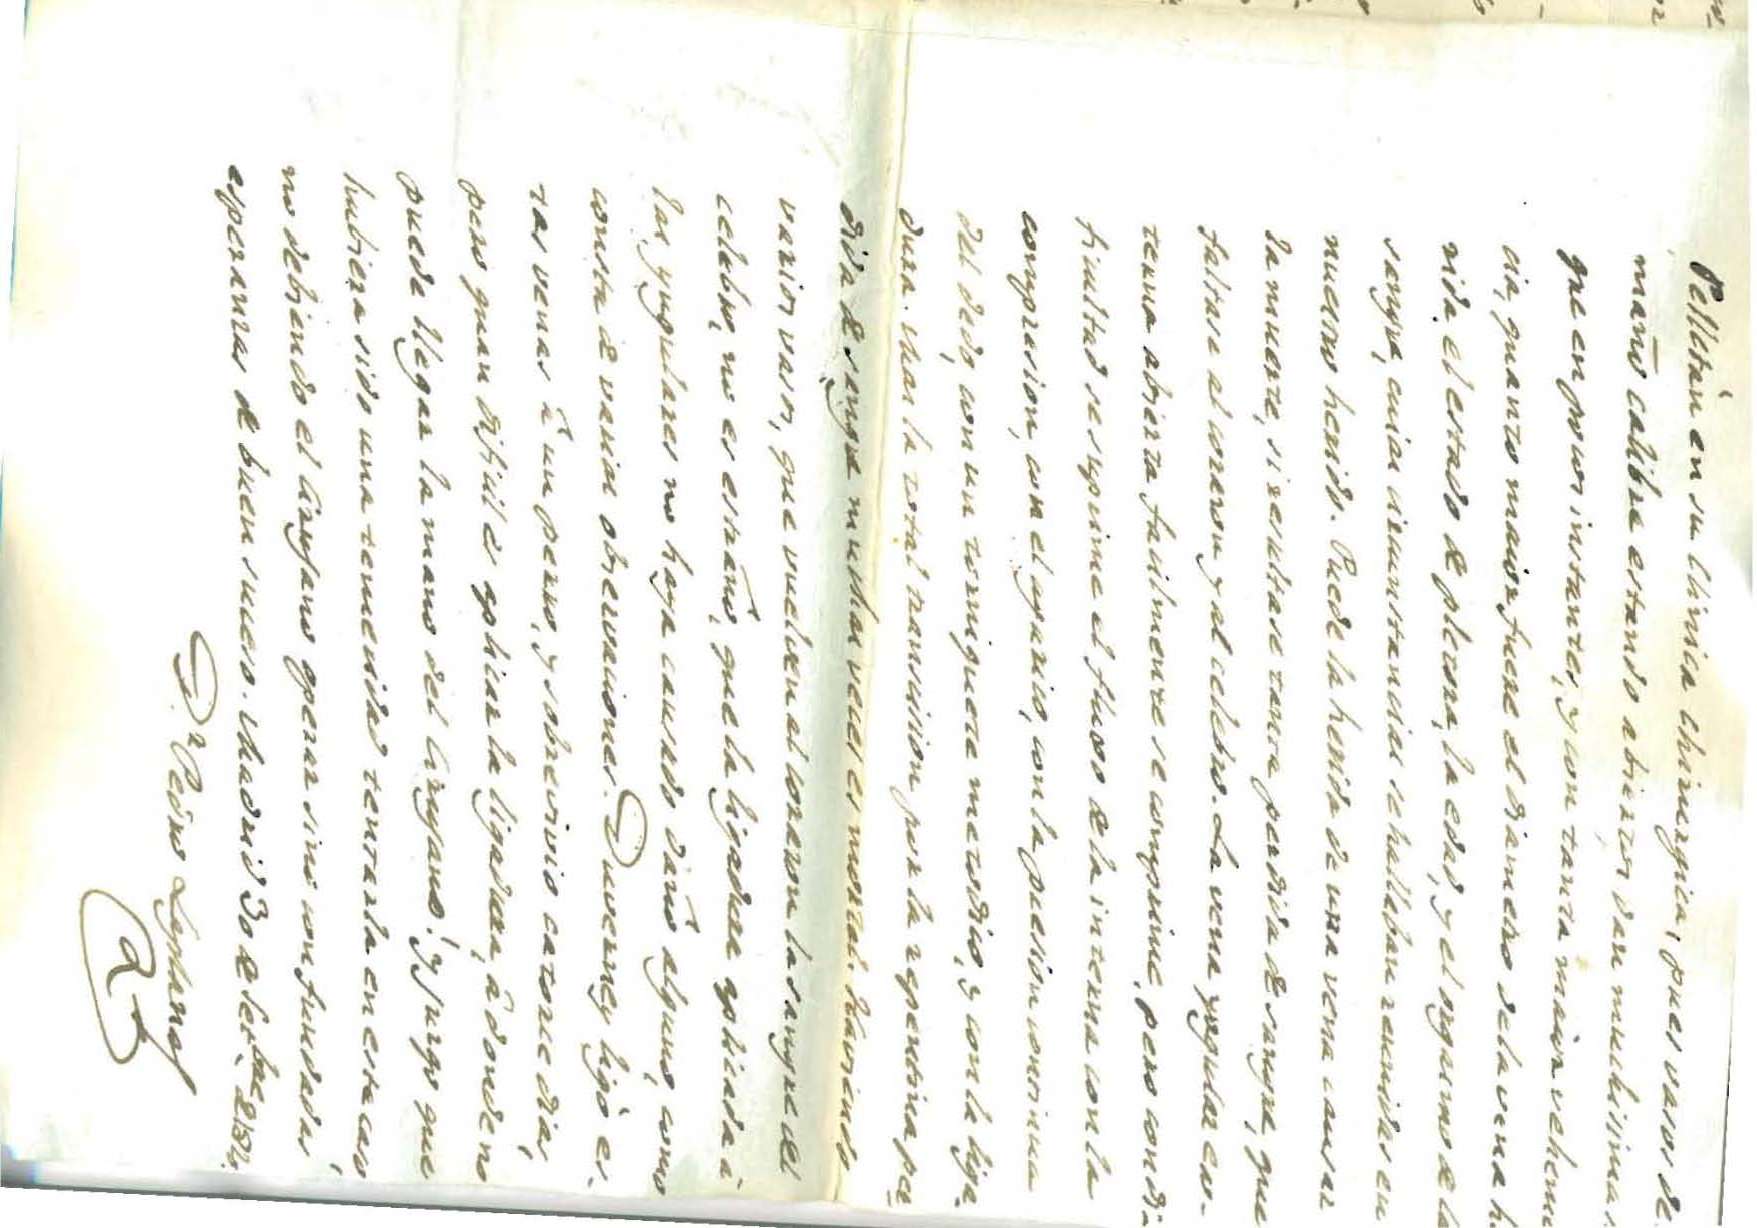 Pelletàn en su clinica chirurgica, pues vasos de
maño calibre estando abiertos dan muchisima s
gre en pocos instantes, y con tanta maior vehemen
cia, quanto maior fuere el diametro de la vena h.
rida, el estado de pletora, la edad, y el orgasmo de la
sangre, cuias circunstancias se hallaban reunidas en
nuestro herido. Puede la herida de una vena causar
la muerte, si resultase tanta perdida de sangre, que
faltase al corazon y al celebro. La vena yugular ex-
terna abierta facilmente se comprime, pero con di-
ficultad se suprime el fluxo de la interna con la
compresion, con el agarico, con la presión continua
del dedo, con un torniquete metodico, y con la liga-
dura. Mas la total transicion por la repentina per
dida de sangre muchas veces es mortal. Haviendo
varios vasos, que vuelven al corazon la sangre del
celebro, no es estraño, que la ligadura aplicada à
las yugulares no haya causado daño alguno, como
consta de varias observaciones. Duverney ligò es-
tas venas à un perro, y sobrevivio catorce dias,
pero quan dificil es aplicar la ligadura, à donde no
puede llegar la mano del cirujano! y juzgo que
hubiera sido una temeridad tentarla en este caso,
no debiendo el cirujano operar sino con fundadas
esperanzas de buen suceso. Madrid 30 de Setbre de
Dr Pedro